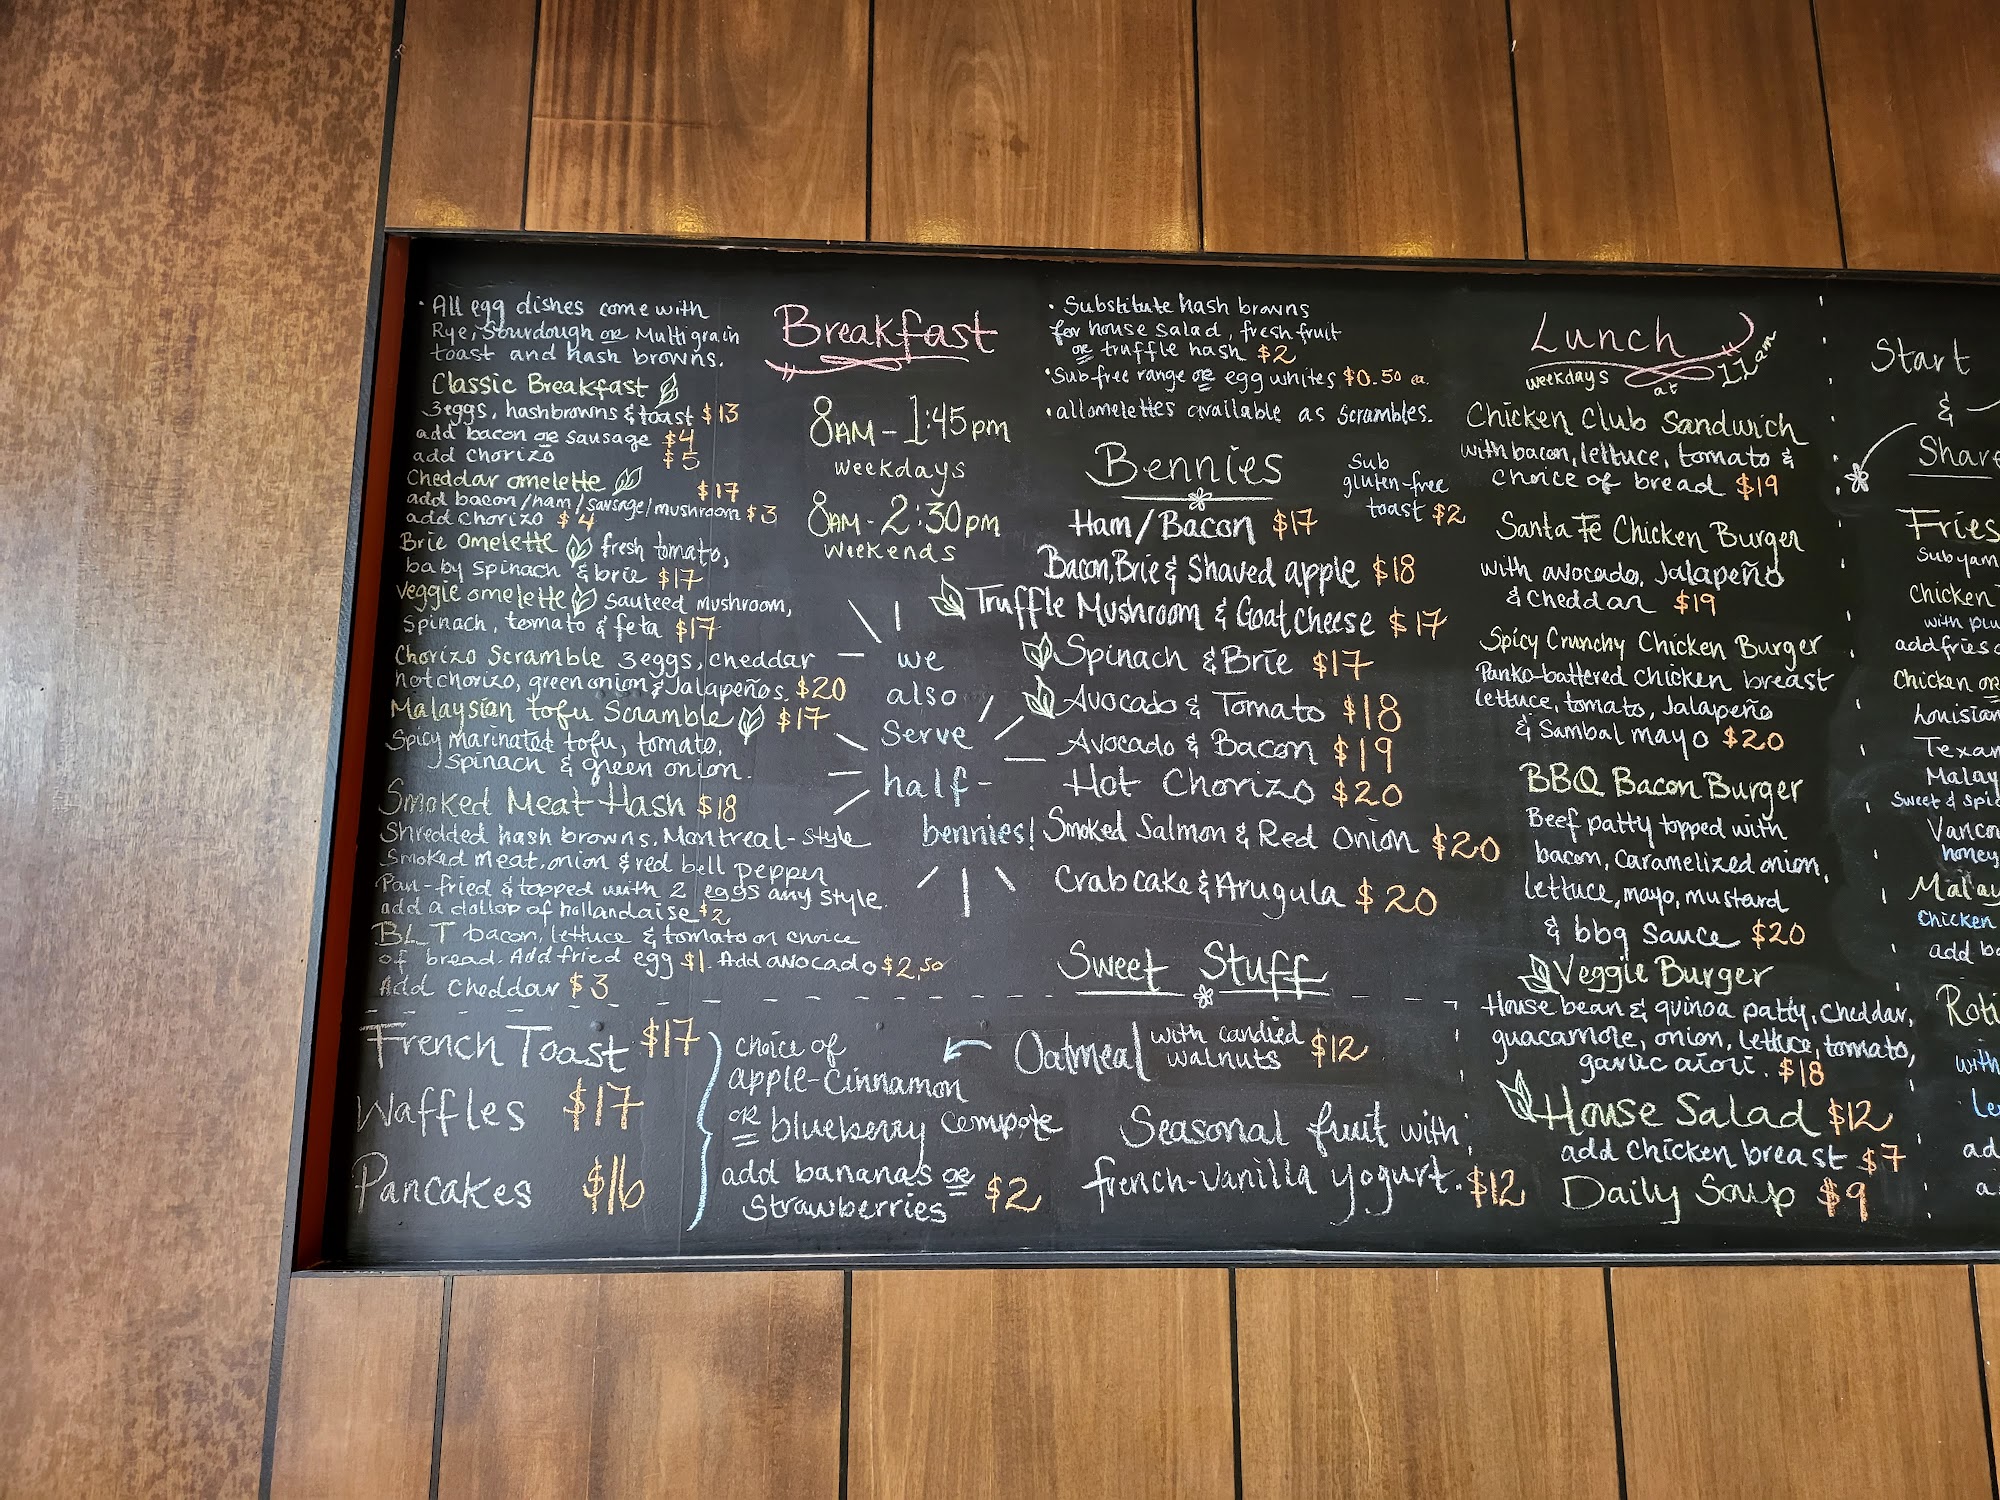 · All egg dishes come with
Rye, Sourdough or Multigrain
toast and hash browns.
Classic Breakfast
3 eggs, hashbrowns & toast $13
add bacon or sausage $4
add chorizo $5
Cheddar omelette $17
add bacon/ham/sausage/mushroom $3
add chorizo $4
Brie omelette fresh tomato,
baby spinach & brie $17
Veggie omelette sauteed mushroom,
Spinach, tomato & feta $17
Chorizo Scramble 3 eggs, cheddar
hot chorizo, green onion & Jalapeños $20
Malaysian tofu Scramble $17
Spicy marinated tofu, tomato,
spinach & green onion.
Smoked Meat Hash $18
Shredded hash browns, Montreal-style
Smoked meat, onion & red bell pepper
Pan-fried & topped with 2 eggs any style
add a dollop of hollandaise $2
BLT bacon, lettuce & tomato on choice
of bread. Add fried egg $1. Add avocado $2.50
Add cheddar $3
Breakfast
8AM - 1:45pm
weekdays
8AM - 2:30pm
weekends
we
also
Serve
half-
bennies!
· Substitute hash browns
for house salad, fresh fruit
or truffle hash $2
· Sub free range or egg whites $0.50 ea.
· all omelettes available as scrambles.
Bennies
Sub
gluten-free
toast $2
Ham/Bacon $17
Bacon, Brie & Shaved apple $18
Truffle Mushroom & Goat Cheese $17
Spinach & Brie $17
Avocado & Tomato $18
Avocado & Bacon $19
Hot Chorizo $20
Smoked Salmon & Red Onion $20
Crabcake & Arugula $20
Sweet Stuff
French Toast $17
Waffles $17
Pancakes $16
choice of
apple-cinnamon
or blueberry compote
add bananas or
strawberries $2
Oatmeal with candied
walnuts $12
Seasonal fruit with
french-vanilla yogurt. $12
Lunch
weekdays at 11am
Chicken Club Sandwich
with bacon, lettuce, tomato &
choice of bread $19
Santa Fe Chicken Burger
with avocado, Jalapeño
& cheddar $19
Spicy Crunchy Chicken Burger
Panko-battered chicken breast
lettuce, tomato, Jalapeño
& Sambal mayo $20
BBQ Bacon Burger
Beef patty topped with
bacon, caramelized onion,
lettuce, mayo, mustard
& bbq sauce $20
Veggie Burger
House bean & quinoa patty, cheddar,
guacamole, onion, lettuce, tomato,
garlic aioli. $18
House Salad $12
add chicken breast $7
Daily Soup $9
Start
&
Share
Fries
Sub yam
Chicken
with
add fries
Chicken or
Louisian
Texan
Malay
Sweet & spic
Vanco
honey
Malay
chicken
add
Roti
with